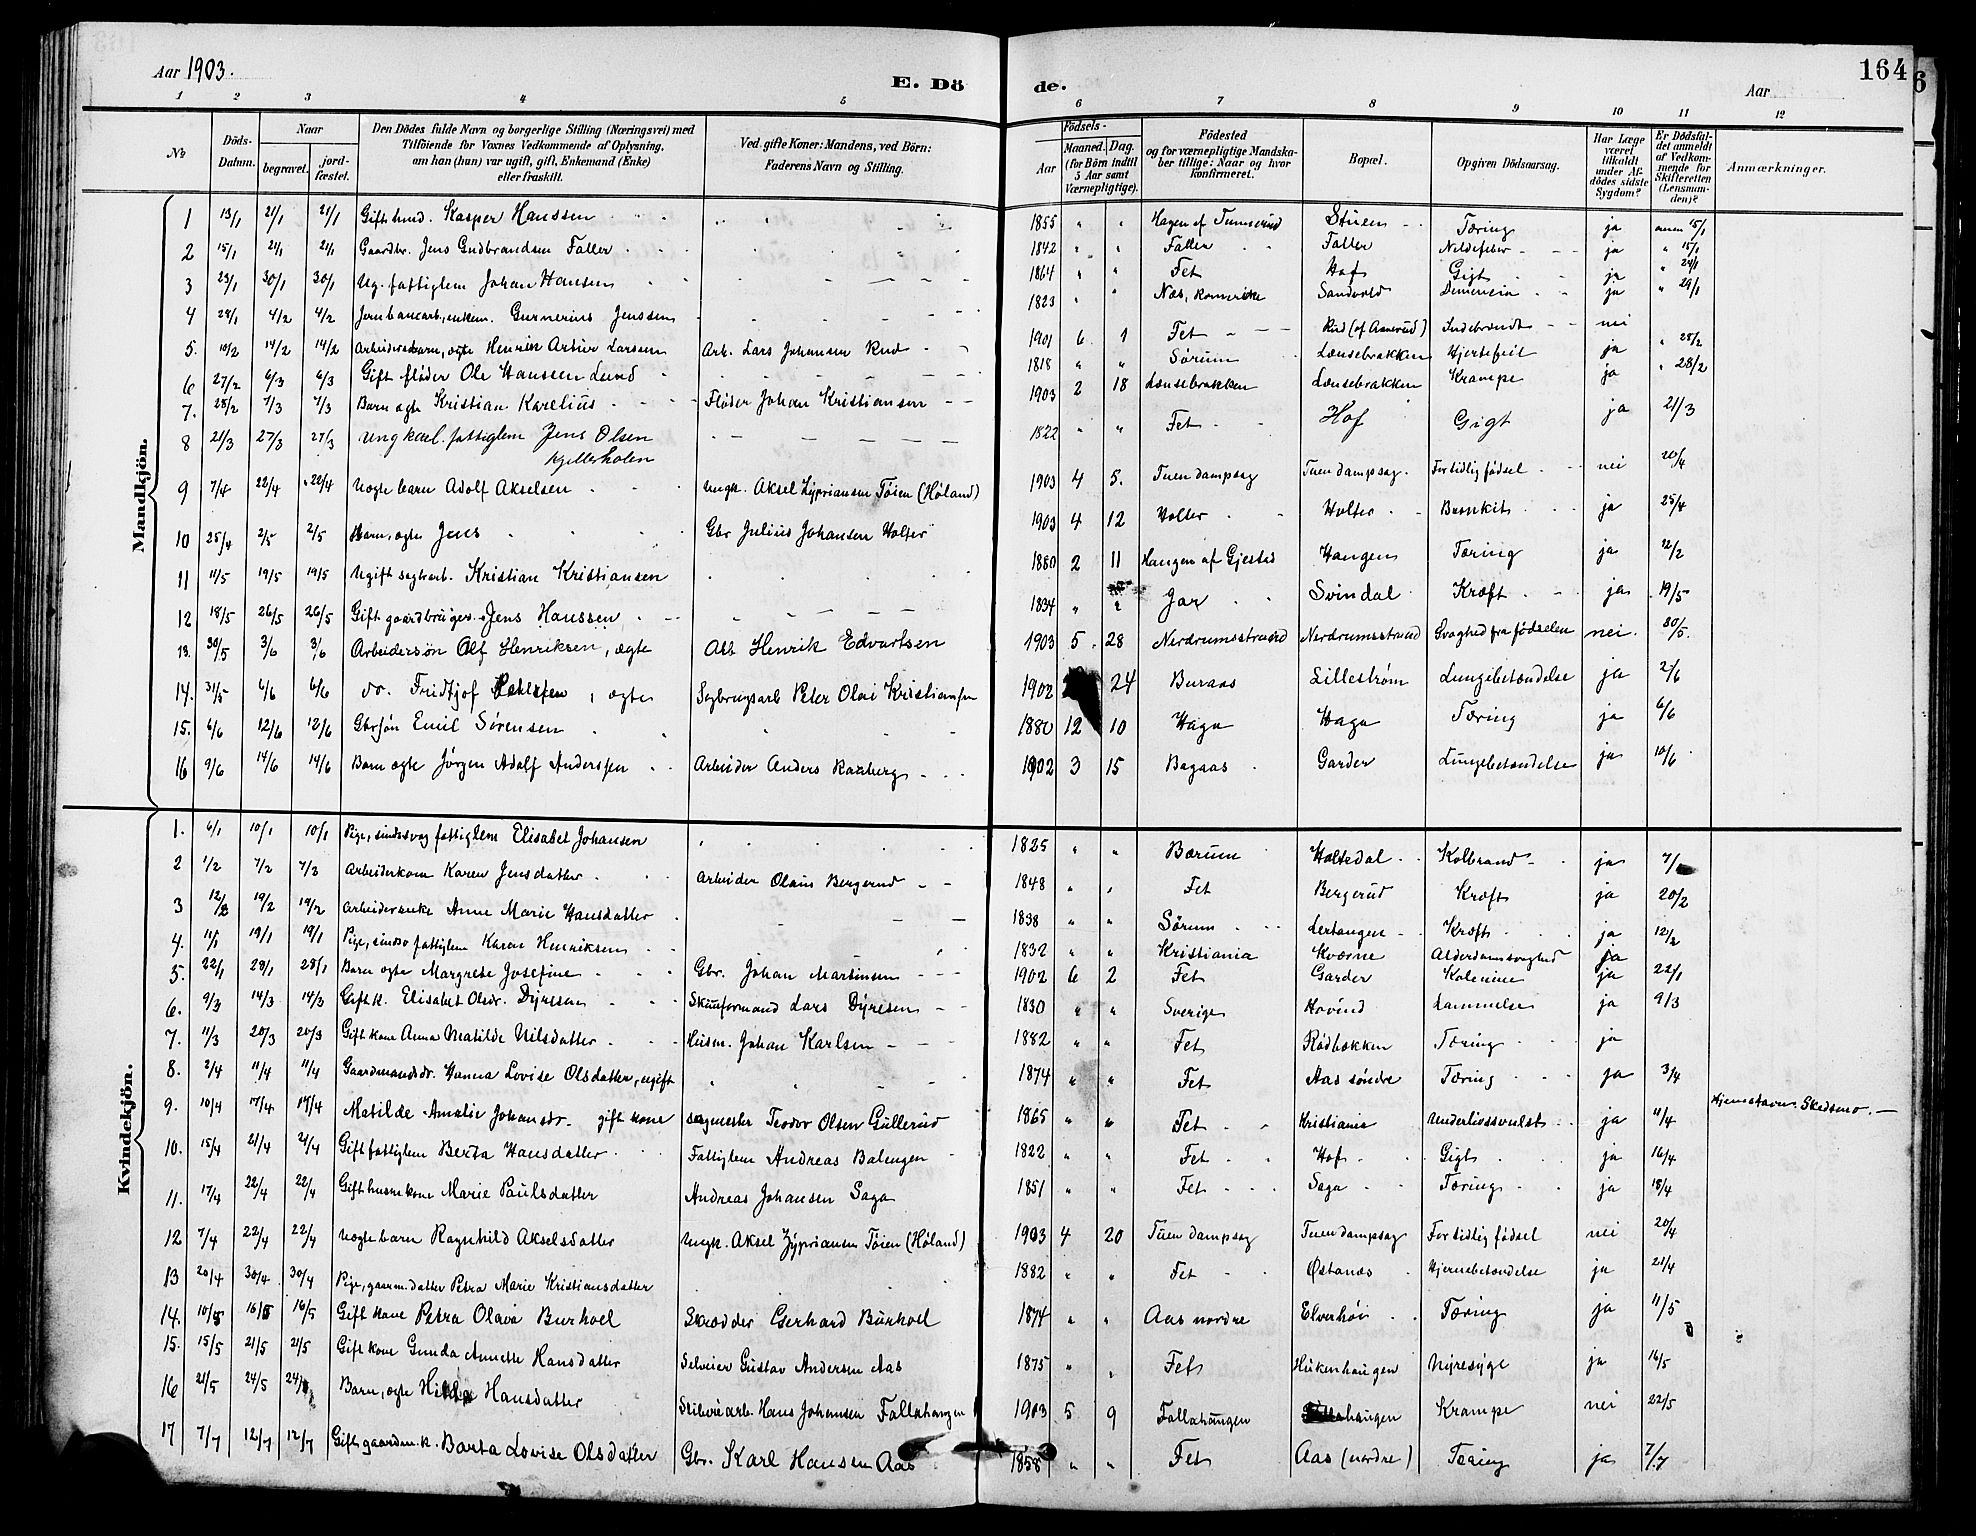 Aar 1903.
E. Dö
de.
Aar
164
1 2 3 4 5 6 7 8 9 10 11 12
No
Döds-Datum.
Naar
begravet.
jord-fæstet.
Den Dödes fulde Navn og borgerlige Stilling (Næringsvei) med Tilföiende for Voxnes Vedkommende af Oplysning, om han (hun) var ugift, gift, Enkemand (Enke) eller fraskilt.
Ved gifte Koner: Mandens, ved Börn: Faderens Navn og Stilling.
Födsels-
Aar
Maaned. Dag.
(for Börn indtil 5 Aar samt Værnepligtige).
Födested og for værnepligtige Mandskaber tillige: Naar og hvor konfirmeret.
Bopæl.
Opgiven Dödsaarsag.
Har Læge været tilkaldt under Afdödes sidste Sygdom?
Er Dödsfaldet anmeldt af Vedkommende for Skifteretten (Lensmanden)?
Anmærkninger.
Mandkjön.
1 13/1 21/1 21/1 Gift husd. Kasper Hanssen 1855 " " Hagen af Tunnerud Stuen Tæring ja anm 15/1
2 15/1 21/1 21/1 Gaardbr. Jens Gudbrandsen Faller 1842 " " Faller Faller ja " 15/1
3 23/1 30/1 30/1 Ug. fattiglem Johan Hansen 1864 " " Fet Hof Gigt ja " 24/1
4 28/1 4/2 4/2 Jernbanearb., enkem. Gunnerius Jenssen 1823 " " Næs, Romerike Sandvold Demencia ja " 29/1
5. 10/2 14/2 14/2 Arbeidersbarn, ægte Henrik Artur Larssen Arb. Lars Johansen Rud 1901 6 1 Fet Rud (af Aamerud) nei
6 27/2 6/3 6/3 Gift fløder Ole Hanssen Lund 1818 " " Sørum Lænsebrakken Hjertefeil ja " 28/2
7. 28/2 7/3 7/3 Barn ægte Kristian Karelius Fløder Johan Kristiansen 1903 2 18 Lænsebrakken Lænsebrakken Krampe ja " 28/2
8 21/3 27/3 27/3 Ungkarl. fattiglem Jens Olsen Kjellerholen 1822 " " Fet Hof Gigt ja 21/3
9 7/4 22/4 22/4 Uægte barn Adolf Akselsen Ungk. Aksel Zyprianssen Tøien (Høland) 1903 4 5. Tuen dampsag Tuen dampsag. For tidlig fødsel nei 20/4
10 25/4 2/5 2/5 Barn, ægte Jens Gbr Julius Johansen Holter 1903 4 12 Holter Holter Bronkit ja 25/4
11 11/5 19/5 19/5 Ugift sagarb. Kristian Kristiansen 1880 2 11 Haugen af Gjestad Haugen Tæring ja 12/2
12 18/5 26/5 26/5 Gift gaardbruger Jens Hanssen 1834 " " Jar Svindal Kræft ja 19/5
13. 30/5 3/6 3/6 Arbeidersøn Olf Henriksen, ægte Arb Henrik Edvartsen 1903 5. 28 Nerdrumsstrand Nerdrumsstrand Svaghed fra fødselen nei. 30/5.
14. 31/5 6/6 6/6 do. Fridtjof, ægte Sagbrugsarb Peter Olai Kristiansen 1902 24 Buraas Lillestrøm Lungebetændelse ja 2/6
15. 6/6 12/6 12/6 Gbrsøn Emil Sørensen 1880 12 10 Haga Haga Tæring ja 6/6
16 9/6 14/6 14/6 Barn ægte Jørgen Adolf Anderssen Arbeider Anders Ramberg 1902 3 15 Bagaas Garder Lungebetændelse ja 10/6
Kvindekjön.
1. 6/1 10/1 10/1 Pige, sindssvag fattiglem Elisabet Johansen 1825 " " Bærum Holtedal Kolbrand ja 7/1
2 1/2 7/2 7/2 Arbeiderkone Karen Jensdatter Arbeider Olaus Bergerud 1848 " " Fet Bergerud Kræft ja 20/2
3 12/2 19/2 19/2 Arbeiderenke Anne Marie Hansdatter 1838 " " Sørum Lertangen Kræft ja 12/2
4. 11/1 19/1 19/1 Pige, sindssv fattiglem Karen Henriksen 1832 " " Kristiania Kværne Alderdomssvaghed ja
5. 22/1 28/1 28/1 Barn ægte Margrete Josefine Gbr. Johan Martinsen 1902 6 2 Fet Garder Kolerine ja 22/1
6. 9/3 14/3 14/3 Gift k. Elisabet Olsdr. Dyresen Skuuformand Lars Dyresen 1830 " " Sverige Hovind Lammelse ja 9/3
7. 11/3 20/3 20/3 Gift kone Anna Matilde Nilsdatter Husm. Johan Karlsen 1882 " " Fet Rødbækken Tæring ja
8. 2/4 11/4 11/4 Gaardmandsdr. Hanna Lovise Olsdatter, ugift 1874 " " Fet Aas søndre Tæring ja 3/4
9. 10/4 17/4 17/4 Matilde Amalie Johansdr. gift kone Sagmester Teodor Olsen Gullerud 1865 " " Fet Kristiania Underlivssvulst ja 11/4 Hjemstavn Skedsmo.
10. 15/4 21/4 21/4 Gift fattiglem Berta Hansdatter Fattiglem Andreas Balengen 1822 " " Fet Hof Gigt ja 16/4
11. 17/4 22/4 22/4 Gift husm kone Marie Paulsdatter Andreas Johansen Saga 1851 " " Fet Saga Tæring ja 18/4
12 7/4 22/4 22/4 Uægte barn Ragnhild Akselsdatter Ungk. Aksel Zyprianssen Tøien (Høland) 1903 4 20 Tuen dampsag Tuen dampsag For tidlig fødsel nei 20/4
13 20/4 30/4 30/4 Pige, gaarm.datter Petra Marie Kristiansdatter 1882 " " Fet Østanes Hjernebetændelse ja 21/4
14. 10/5 16/5 16/5 Gift kone Petra Olava Burkoel Skrædder Gerhard Burkoel 1874 " " Aas nordre Elverhøi Tæring ja 11/5
15. 15/5 21/5 21/5 Gift kone Gunda Annette Hansdatter Selveier Gustav Andersen Aas 1875 " " Fet Hukenhaugen Nyresyge ja 16/5
16 21/5 24/5 24/ Barn, ægte Hilda Hansdatter Hans Johansen Fallahaugen 1903 5 9 Fallahaugen Fallahaugen Krampe nei 22/5
17 7/7 12/7 12/7 Gift gaardm.k. Barta Lovise Olsdatter Gbr. Karl Hansen Aas 1858 " " Fet Aas (nordre) Tæring ja 7/7